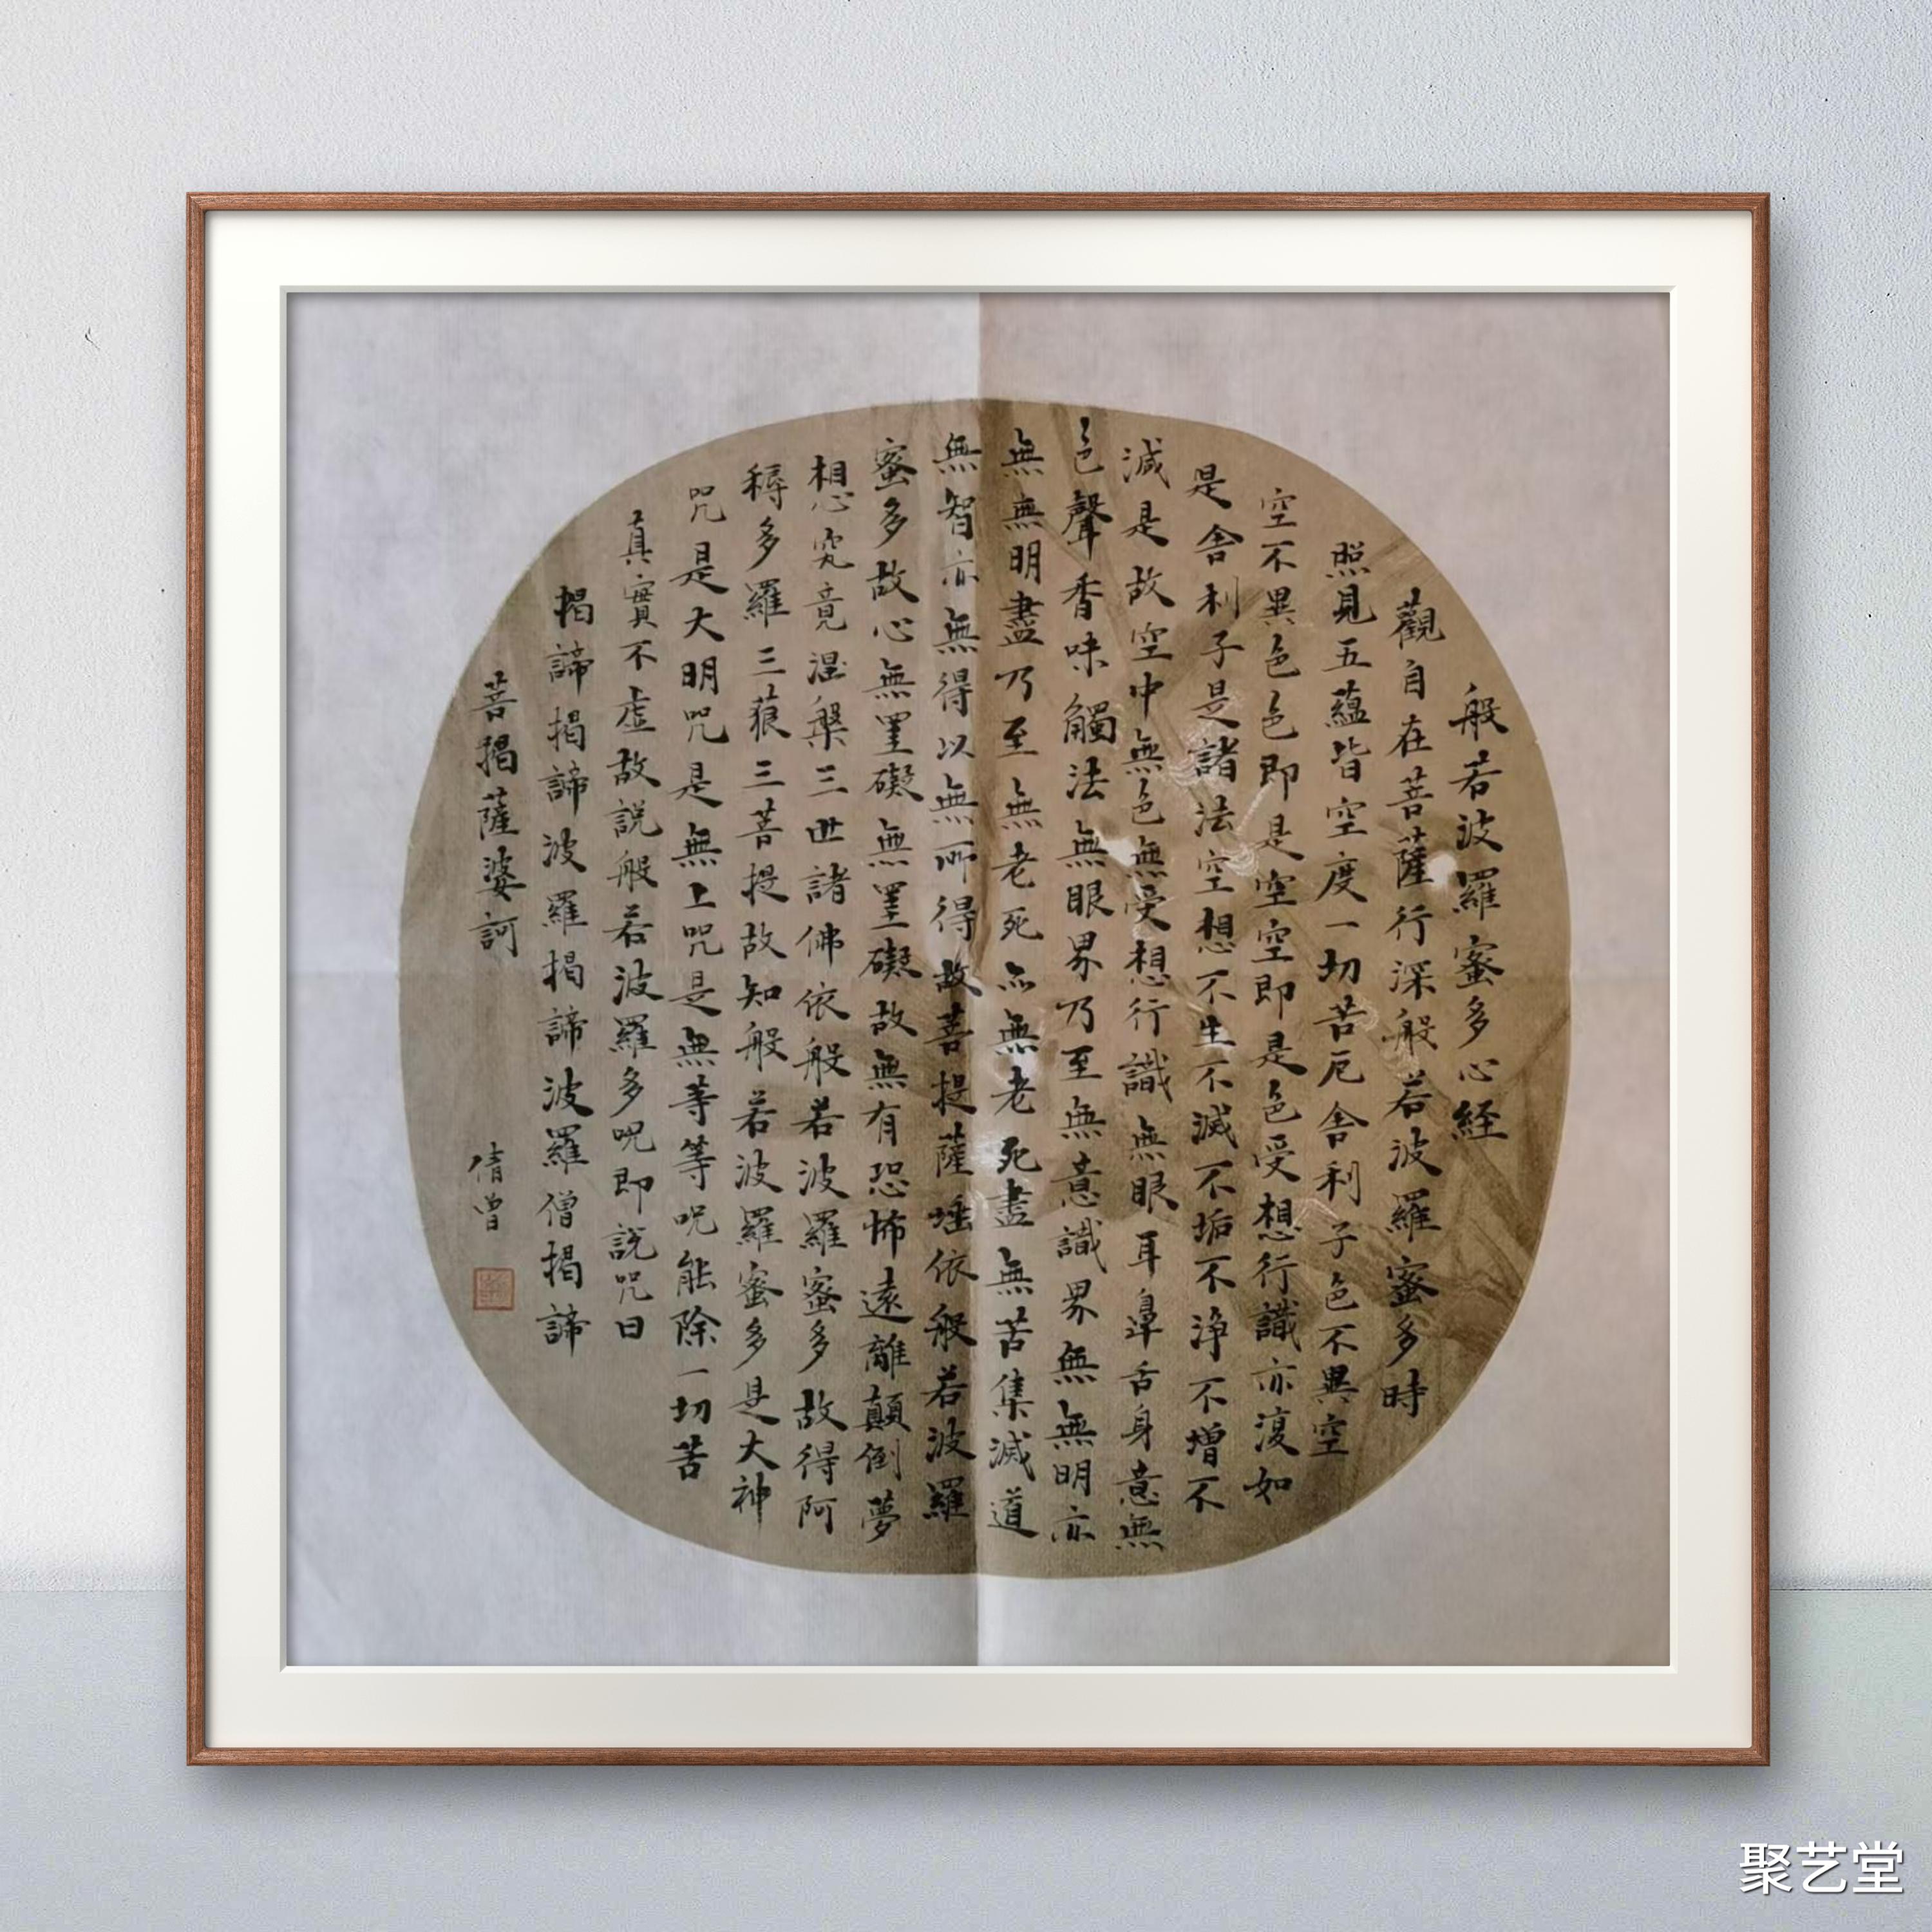 般若波羅蜜多心経
觀自在菩薩行深般若波羅蜜多時
照見五蘊皆空度一切苦厄舍利子色不異空
空不異色色即是空空即是色受想行識亦復如
是舍利子是諸法空想不生不滅不垢不浄不増不
減是故空中無色無受想行識無眼耳鼻舌身意無
色聲香味觸法無眼界乃至無意識界無無明亦
無無明盡乃至無老死亦無老死盡無苦集滅道
無智亦無得以無所得故菩提薩埵依般若波羅
蜜多故心無罣礙無罣礙故無有恐怖遠離顛倒夢
想究竟涅槃三世諸佛依般若波羅蜜多故得阿
耨多羅三藐三菩提故知般若波羅蜜多是大神
咒是大明咒是無上咒是無等等咒能除一切苦
真實不虛故說般若波羅多咒即說咒曰
揭諦揭諦波羅揭諦波羅僧揭諦
菩揭薩婆訶
倩曾
聚艺堂